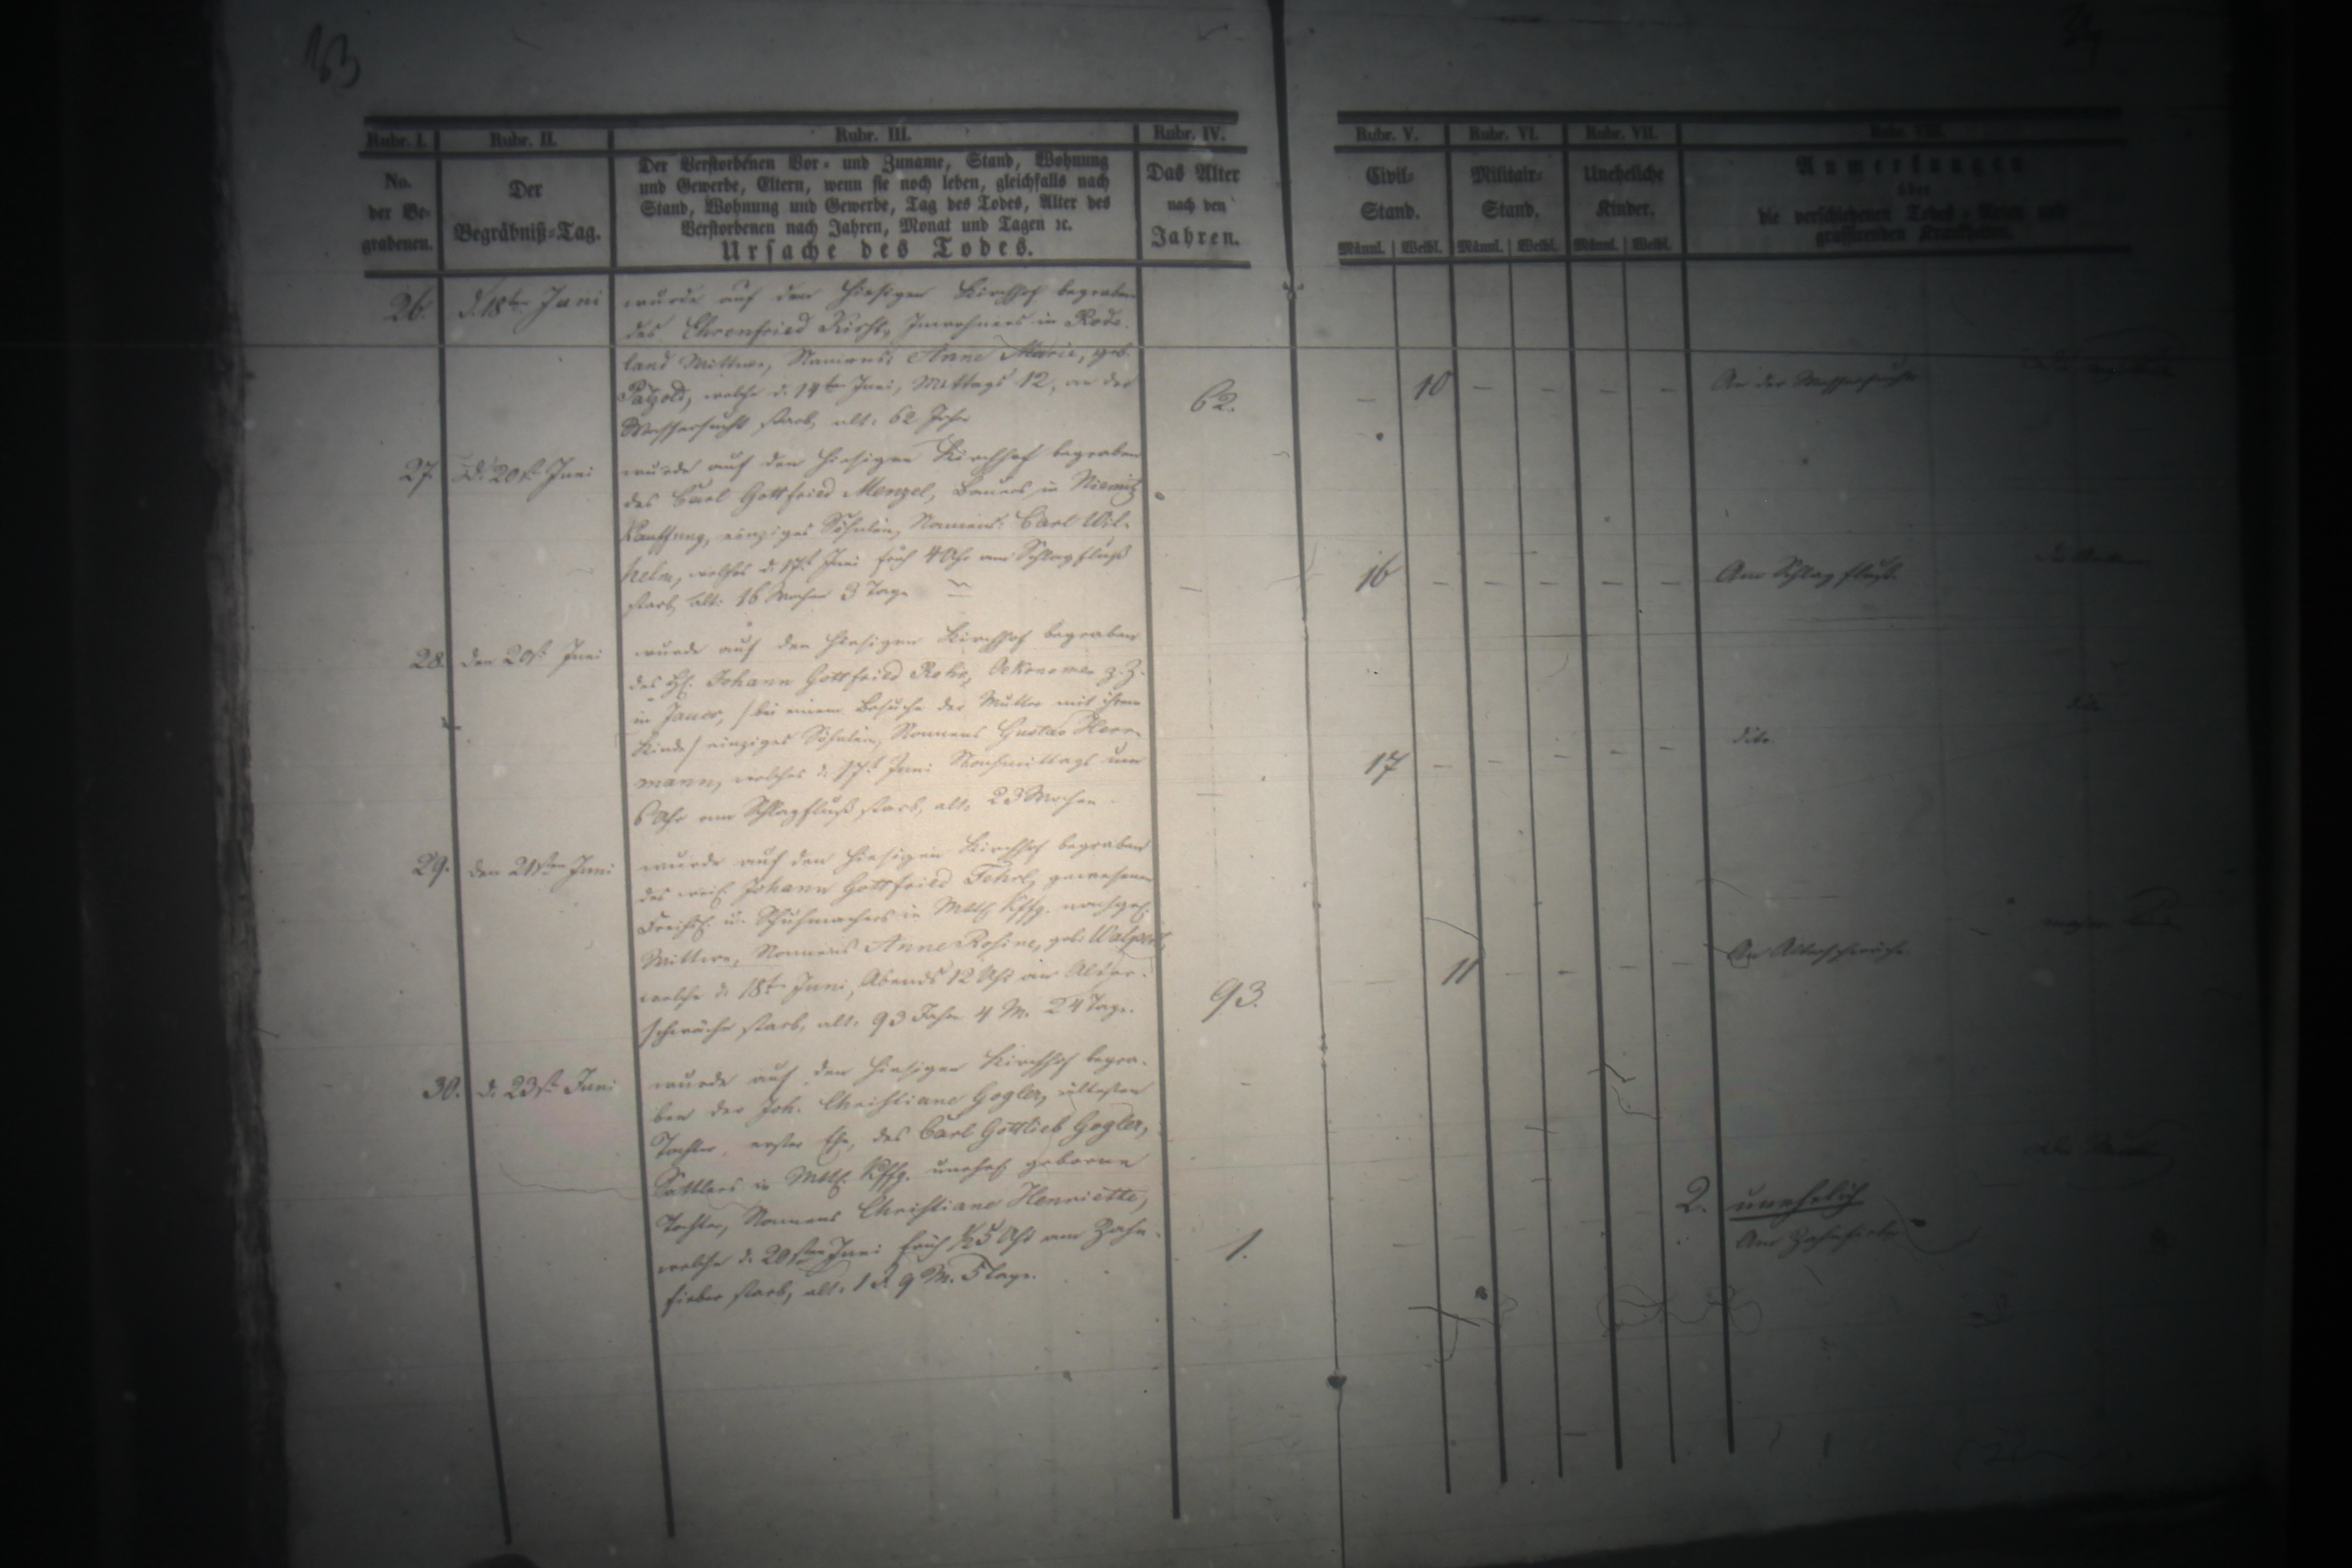 Rubr. I.
Rubr. II.
Rubr. III.
Rubr. IV.
Rubr. V.
Rubr. VI.
Rubr. VII.
Rubr. VIII.
No.
der Be-
grabenen.
Der
Begräbniß-Tag.
Der Verstorbenen Vor- und Zuname, Stand, Wohnung
und Gewerbe, Eltern, wenn sie noch leben, gleichfalls nach
Stand, Wohnung und Gewerbe, Tag des Todes, Alter des
Verstorbenen nach Jahren, Monat und Tagen ꝛc.
Ursache des Todes.
Das Alter
nach den
Jahren.
Civil-
Stand.
Männl. Weibl.
Militair-
Stand.
Männl. Weibl.
Uneheliche
Kinder.
Männl. Weibl.
Anmerkungen
über
die verschiedenen Todes-Arten und
grassirenden Krankheiten.
26. d. 18ten Juni
wurde auf den hiesigen Kirchhof begraben
des Ehrenfried Inwohners in
land Wittwe, Namens: Anne Marie, geb.
Pätzold, welche d. 14ten Juni, Mittags 12, an der
Wassersucht starb, alt: 62 Jahr
62.
10
An der Wassersucht
27. D. 20st. Juni
wurde auf den hiesigen Kirchhof begraben
des Carl Gottfried Menzel, Bauers in
Kauffung, einziges Söhnlein, Namens: Carl Wil-
helm, welches d. 17t. Juni früh 4 Uhr am Schlagfluß
starb, alt: 16 Wochen 3 Tage
16
Am Schlagfluß.
28. den 20st. Juni
wurde auf den hiesigen Kirchhof begraben
des H. Johann Gottfried Rohr, Oekonomen z. Z.
in Jauer, /bei einem Besuche der Mutter mit ihrem
Kinde/ einziges Söhnlein, Namens Gustav Herr-
mann, welches d. 17t. Juni Nachmittags um
6 Uhr am Schlagfluß starb, alt: 23 Wochen
17
dito.
29. den 21sten Juni
wurde auf den hiesigen Kirchhof begraben
des weil. Johann Gottfried gewesenen
u. Schuhmachers in Mttl. Kffg. nachgel.
Wittwe, Namens Anne Rosine, geb.
welche d. 18t. Juni, Abends 12 Uhr an Alter-
schwäche starb, alt: 93 Jahr 4 M. 24 Tage.
93.
11
An Altersschwäche
30. d. 23st. Juni
wurde auf den hiesigen Kirchhof begra-
ben der Joh. Christiane Gogler, ältesten
Tochter, erster Ehe, des Carl Gottlieb Gogler,
Sattlers in Mttl. Kffg. unehel. geborne
Tochter, Namens Christiane Henriette,
welche d. 20sten Juni früh ½5 Uhr am Zahn-
fieber starb, alt: 1 J. 9 M. 5 Tage.
1.
2. unehelich
Am Zahnfieber